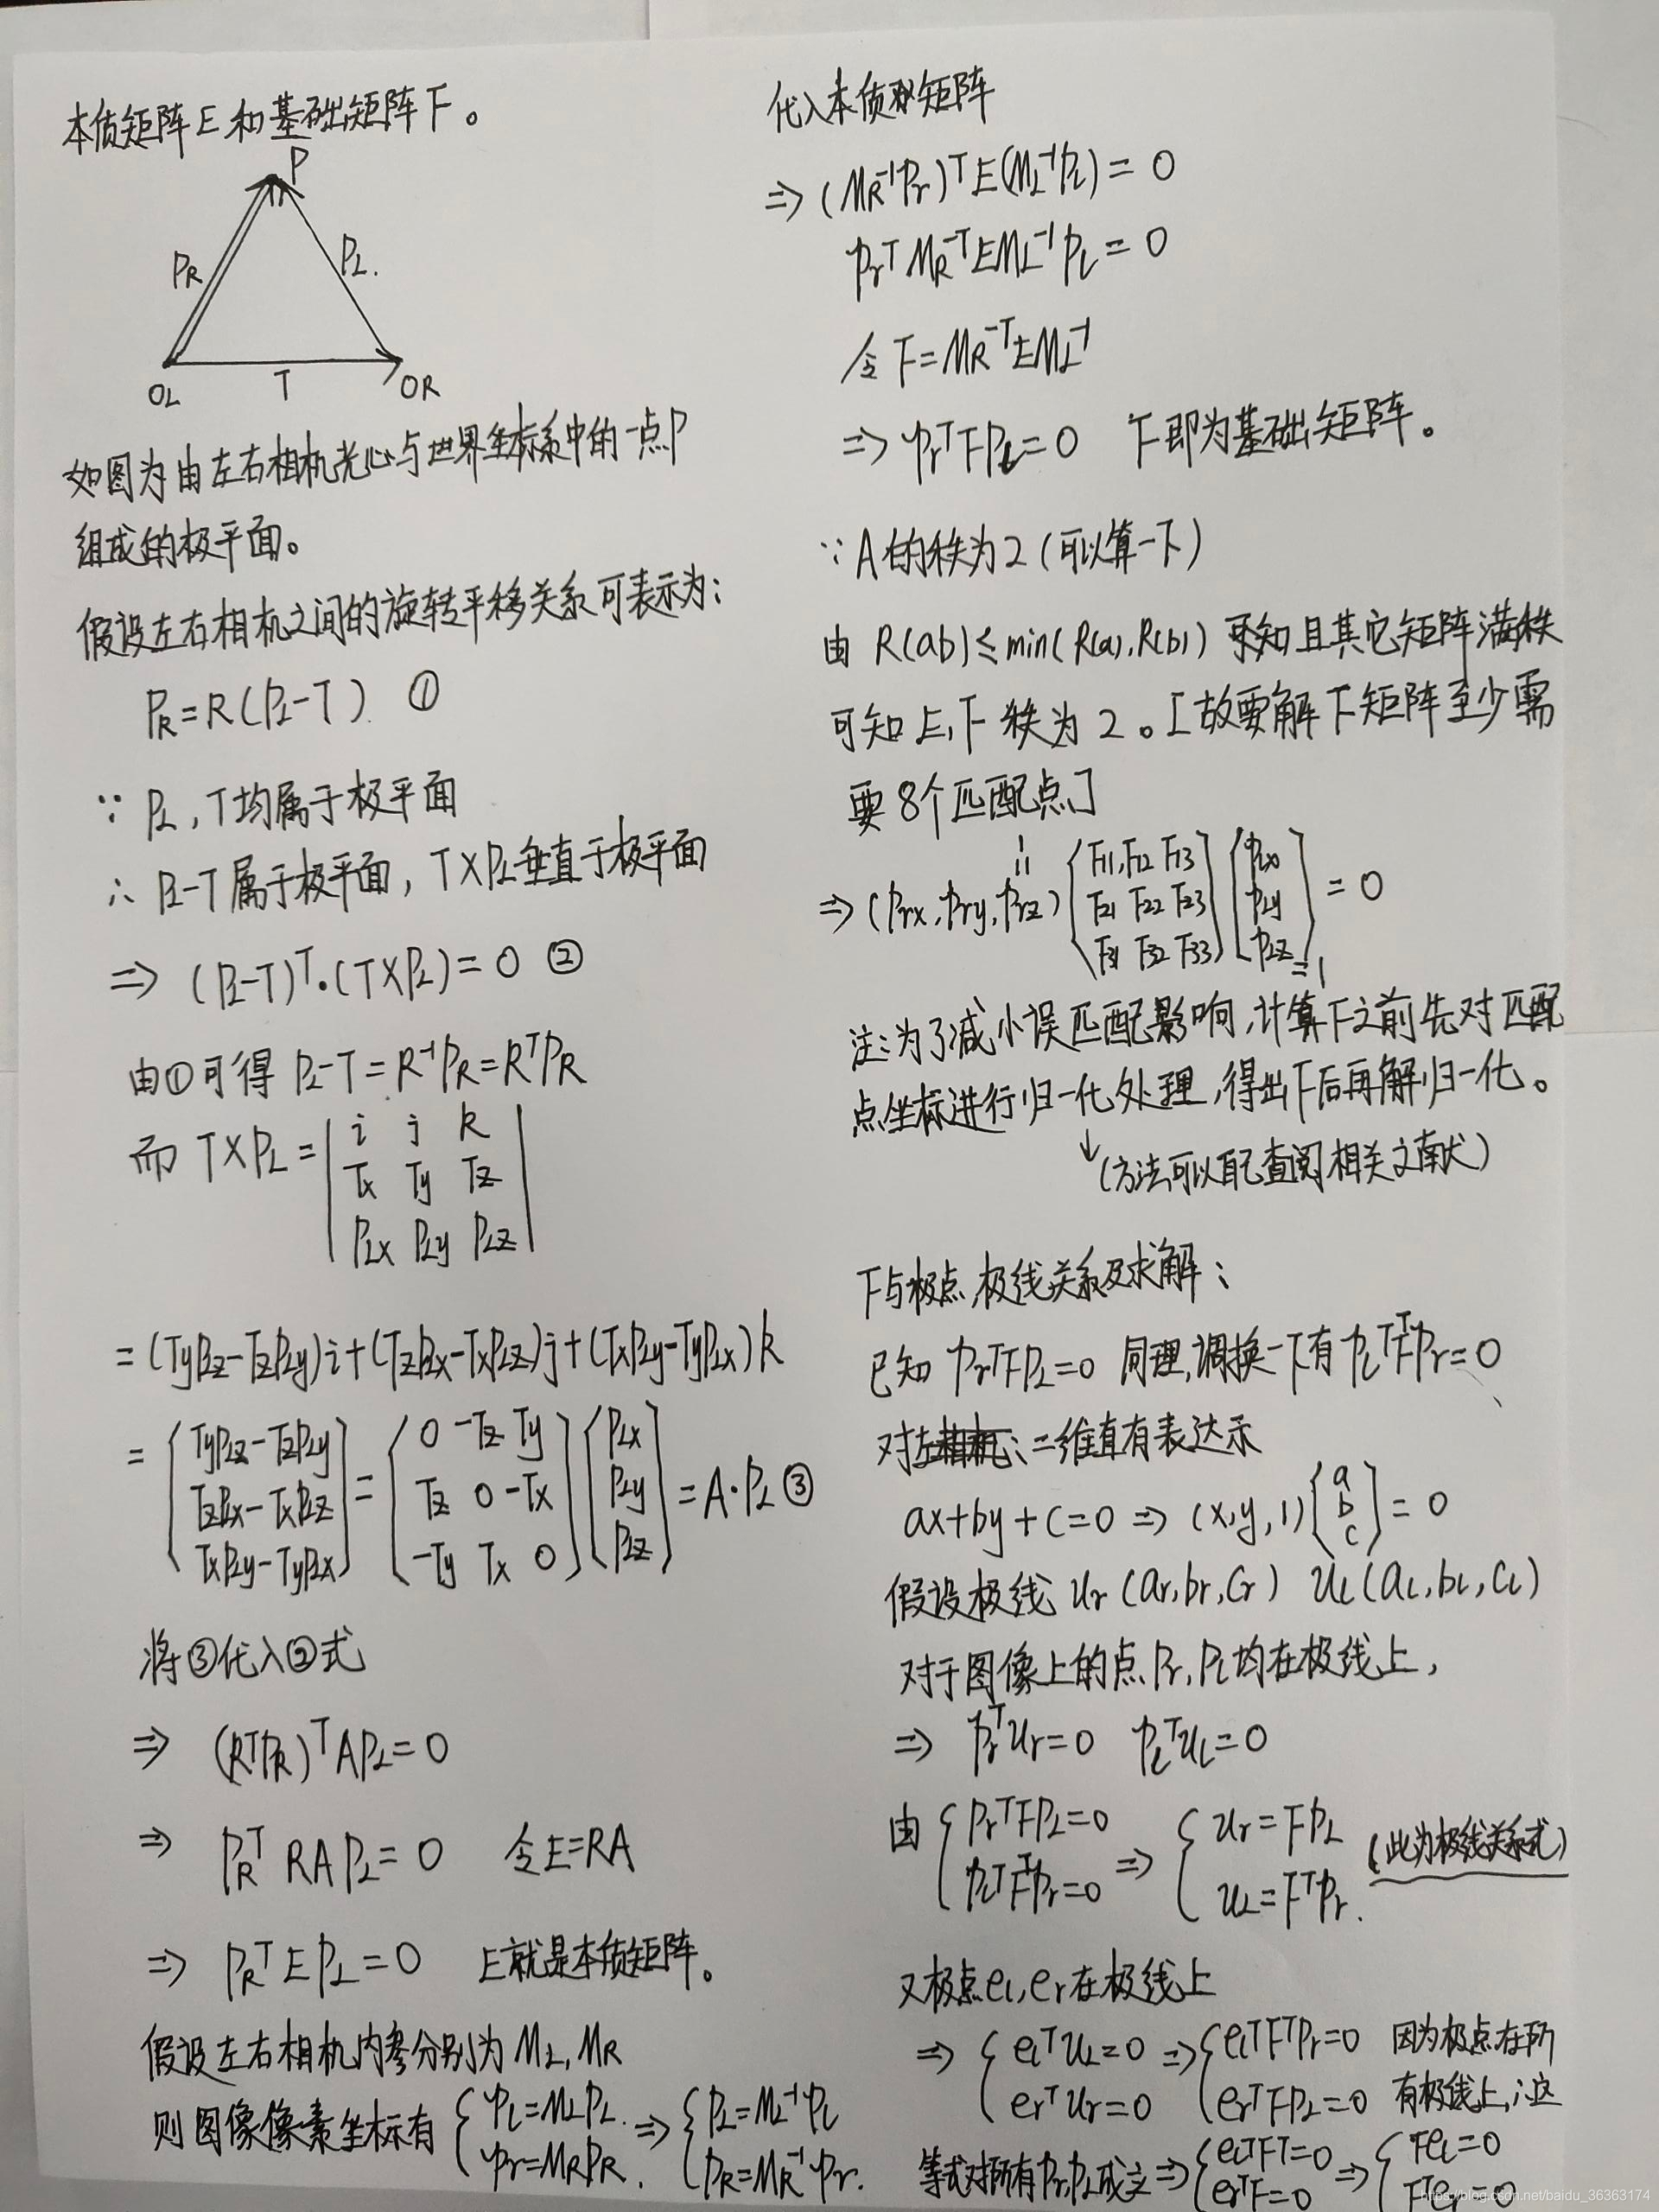 本质矩阵E和基础矩阵F。
P
PR
PL.
OL
T
OR
如图为由左右相机光心与世界坐标系中的一点P
组成的极平面。
假设左右相机之间的旋转平移关系可表示为:
PR=R(PL-T) ①
∵ PL,T均属于极平面
∴ PL-T属于极平面,T×PL垂直于极平面
⇒ (PL-T)ᵀ·(T×PL)=0 ②
由①可得 PL-T=R⁻¹PR=RᵀPR
而 T×PL= | i j k |
| Tx Ty Tz |
| PLx PLy PLz |
=(TyPLz-TzPLy)i+(TzPLx-TxPLz)j+(TxPLy-TyPLx)k
= [TyPLz-TzPLy] = [0 -Tz Ty] [PLx]
[TzPLx-TxPLz] [Tz 0 -Tx] [PLy] =A·PL ③
[TxPLy-TyPLx] [-Ty Tx 0] [PLz]
将③代入②式
⇒ (RᵀPR)ᵀAPL=0
⇒ PRᵀRAPL=0 令E=RA
⇒ PRᵀEPL=0 E就是本质矩阵。
假设左右相机内参分别为ML,MR
则图像像素坐标有 {pl=MLPL. ⇒ {PL=ML⁻¹pl
{pr=MRPR. {PR=MR⁻¹pr.
代入本质矩阵
⇒ (MR⁻¹pr)ᵀE(ML⁻¹pl)=0
prᵀMR⁻ᵀEML⁻¹pl=0
令F=MR⁻ᵀEML⁻¹
⇒ prᵀFpl=0 F即为基础矩阵。
∵ A的秩为2(可以算一下)
由 R(ab)≤min(R(a),R(b)) 可知且其它矩阵满秩
可知E,F秩为2。[故要解F矩阵至少需
要8个匹配点]
⇒ (prx,pry,prz) [F11,F12 F13] [pLx]
[F21 F22 F23] [pLy] =0
[F31 F32 F33] [pLz]=1
注:为了减小误匹配影响,计算F之前先对匹配
点坐标进行归一化处理,得出F后再解归一化。
↓(方法可以自己查阅相关文献)
F与极点,极线关系及求解:
已知 prᵀFpL=0 同理,调换一下有plᵀFᵀpr=0
对左相机:二维直有表达示
ax+by+c=0 ⇒ (x,y,1) [a b c] =0
假设极线 ur(ar,br,cr) ul(al,bl,cl)
对于图像上的点pr,pl均在极线上,
⇒ prᵀur=0 plᵀul=0
由 {prᵀFpL=0 ⇒ {ur=FpL (此为极线关系式)
{plᵀFᵀpr=0 {uL=Fᵀpr.
又极点el,er在极线上
⇒ {elᵀuL=0 ⇒ {elᵀFᵀpr=0 因为极点在所
{erᵀur=0 {erᵀFpL=0 有极线上,∴这
等式对所有pr,pl成立⇒ {elᵀFᵀ=0 ⇒ {Fel=0
{erᵀF=0 {Fᵀer=0
https://blog.csdn.net/baidu_36363174